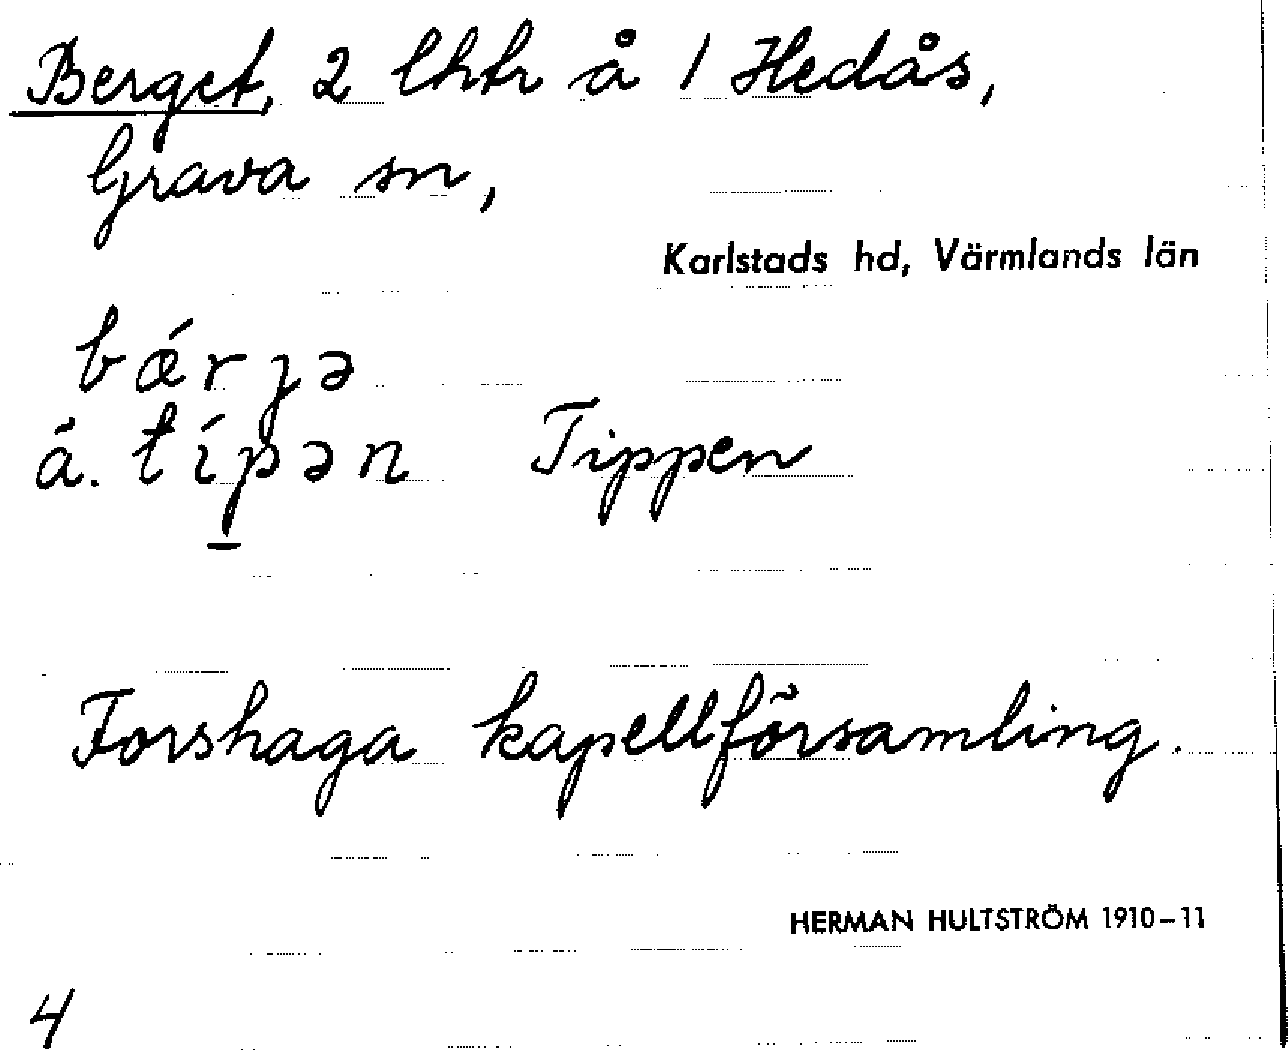 Berget, 2 lhtr å 1 Hedås,
Grava sn,
Karlstads hd, Värmlands län
bǽrɟə
á. típ̠ən Tippen
Forshaga kapellförsamling.
HERMAN HULTSTRÖM 1910–11
4